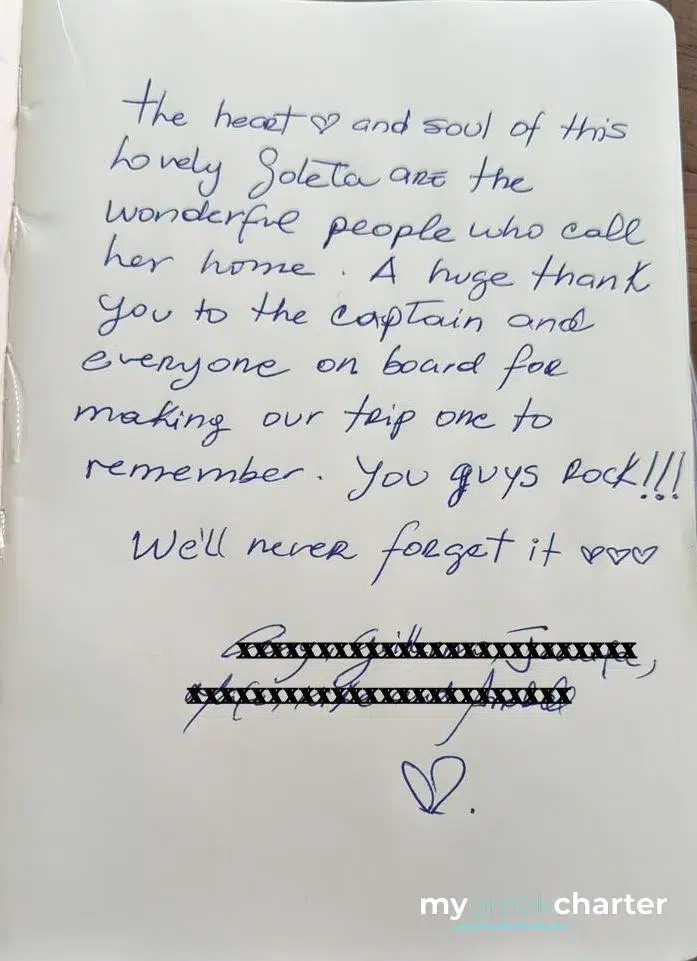 the heart ♡ and soul of this
Lovely Goleta are the
wonderful people who call
her home. A huge thank
you to the captain and
everyone on board for
making our trip one to
remember. You guys Rock!!!
We'll never forget it ♡♡♡
mygreekcharter